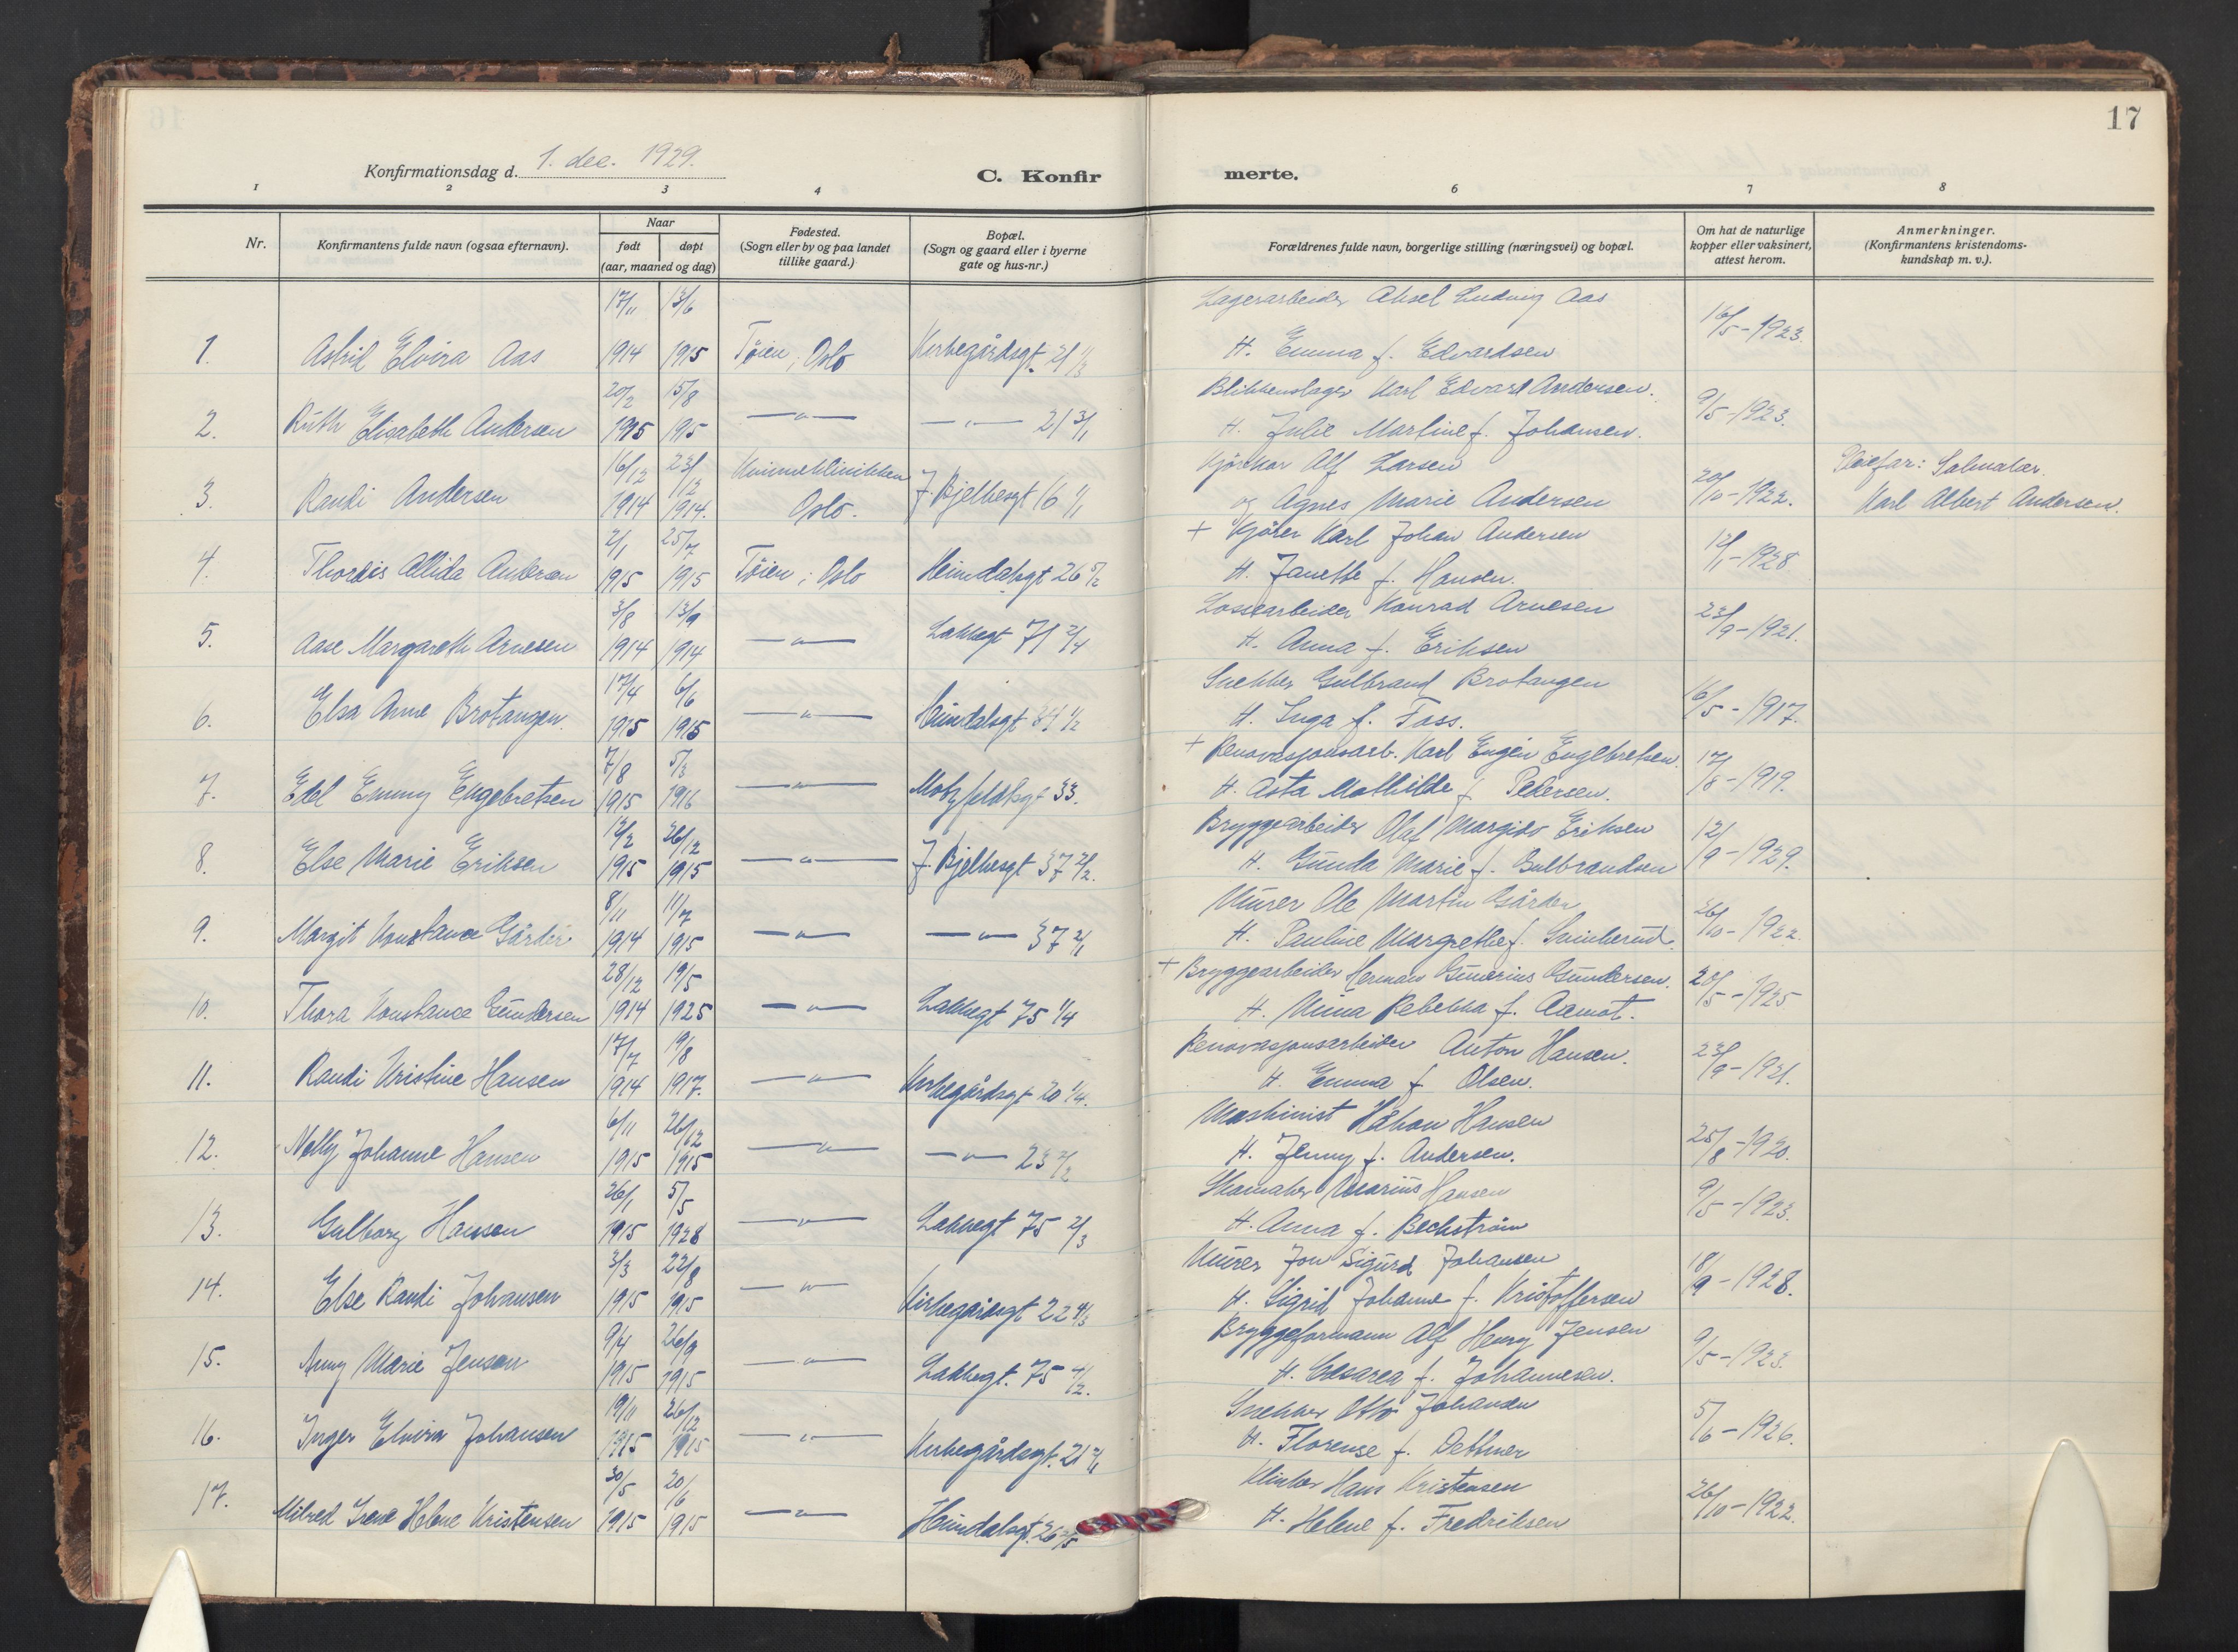 17
Konfirmationsdag d. 1. dec. 1929.
C. Konfirmerte.
1 2 3 4 5 6 7 8
Nr.
Konfirmantens fulde navn (ogsaa efternavn).
Naar
født døpt
(aar, maaned og dag)
Fødested.
(Sogn eller by og paa landet
tillike gaard.)
Bopæl.
(Sogn og gaard eller i byerne
gate og hus-nr.)
Forældrenes fulde navn, borgerlige stilling (næringsvei) og bopæl.
Om hat de naturlige
kopper eller vaksinert,
attest herom.
Anmerkninger.
(Konfirmantens kristendoms-
kundskap m. v.).
17/11 13/6 Lagerarbeider Aksel Ludvig Aas 16/5-1923.
1. Astrid Elvira Aas 1914 1915 Tøien, Oslo Kirkegårdsgt. 21 1/3 H. Emma f. Edvardsen
20/2 15/8 Blikkenslager Karl Edvard Andersen. 9/5-1923.
2. Ruth Elisabeth Andersen 1915 1915 —"— —"— 21 3/1 H. Julie Martine f. Johansen.
16/12 23/12 Kvinneklinikken Kjørekar Alf Larsen 20/10-1922. Pleiefar: Salmaker.
3. Randi Andersen 1914 1914. Oslo. J. Bjelkesgt 16 1/1 og Agnes Marie Andersen Karl Albert Andersen.
2/1 25/7 + Kjører Karl Johan Andersen 12/1-1928
4. Thordis Alida Andersen 1915 1915 Tøien, Oslo Heimdalsgt 26 H. Janette f. Hansen.
3/8 13/9 Lossearbeider Konrad Arnesen 23/9-1921.
5. Aase Margareth Arnesen 1914 1914 —"— Lakkegt 71 2/4 H. Anna f. Eriksen
17/4 6/6 Snekker Gulbrand Brotangen 16/5-1917.
6. Elsa Anne Brotangen. 1915 1915 —"— Heimdalsgt 1/2 H. Inga f. Foss.
7/8 5/3 + Renovasjonsarb. Karl Eugen Engebretsen. 17/8-1919.
7. Edel Emmy Engebretsen 1915 1916 —"— Motzfeldtsgt 33. H. Asta Mathilde f. Pedersen.
12/2 26/12 Bryggearbeider Olaf Margido Eriksen 12/9-1929.
8. Else Marie Eriksen 1915 1915 —"— J. Bjelkesgt 37 2/2. H. Gunda Marie f. Gulbrandsen
8/11 11/7 Murer Ole Martin Gården 26/10-1922.
9. Margit Konstance 1914 1915 —"— —"— 37 2/1 H. Pauline Margrethe f.
28/12 19/5 + Bryggearbeider Herman Gunerius Gundersen. 20/5-1925
10. Thora Konstance Gundersen 1914 1925 —"— Lakkegt 75 1/4 H. Mina Rebekka f. Aamot.
17/7 19/8 Renovasjonsarbeider Anton Hansen. 23/9-1921.
11. Randi Kristine Hansen 1914 1917. —"— Kirkegårdsgt 20 1/4. H. Emma f. Olsen.
6/11 26/12 Maskinist Håkon Hansen 25/8-1920.
12. Nelly Johanne Hansen 1915 1915 —"— —"— 23 2/2 H. Jenny f. Andersen.
26/1 5/5 Skomaker Marius Hansen 9/5-1923.
13. Gulborg Hansen 1915 1928 —"— Lakkegt 75 2/3 H. Anna f. Beckstrøm
3/3 22/8 Murer Jon Sigurd Johansen 18/9-1928.
14. Else Randi Johansen 1915 1915 —"— Kirkegårdsgt 22 4/3 H. Sigrid Johanne f. Kristoffersen
9/4 26/9 Bryggeformann Alf Henry Jensen 9/5-1923.
15. Anny Marie Jensen 1915 1915 —"— Lakkegt. 75 4/2. H. Cæsarea f. Johannesen.
19/11 26/12 Snekker Otto Johansen 5/6-1926.
16. Inger Elvira Johansen 1915 1915 —"— Kirkegårdsgt. 21 2/1 H. Florense f. Dettmer
30/5 20/6 Klinker Hans Kristensen 26/10-1922.
17. Milred Irene Helene Kristensen 1915 1915 —"— Heimdalsgt. 26 2/5 H. Helene f. Fredriksen